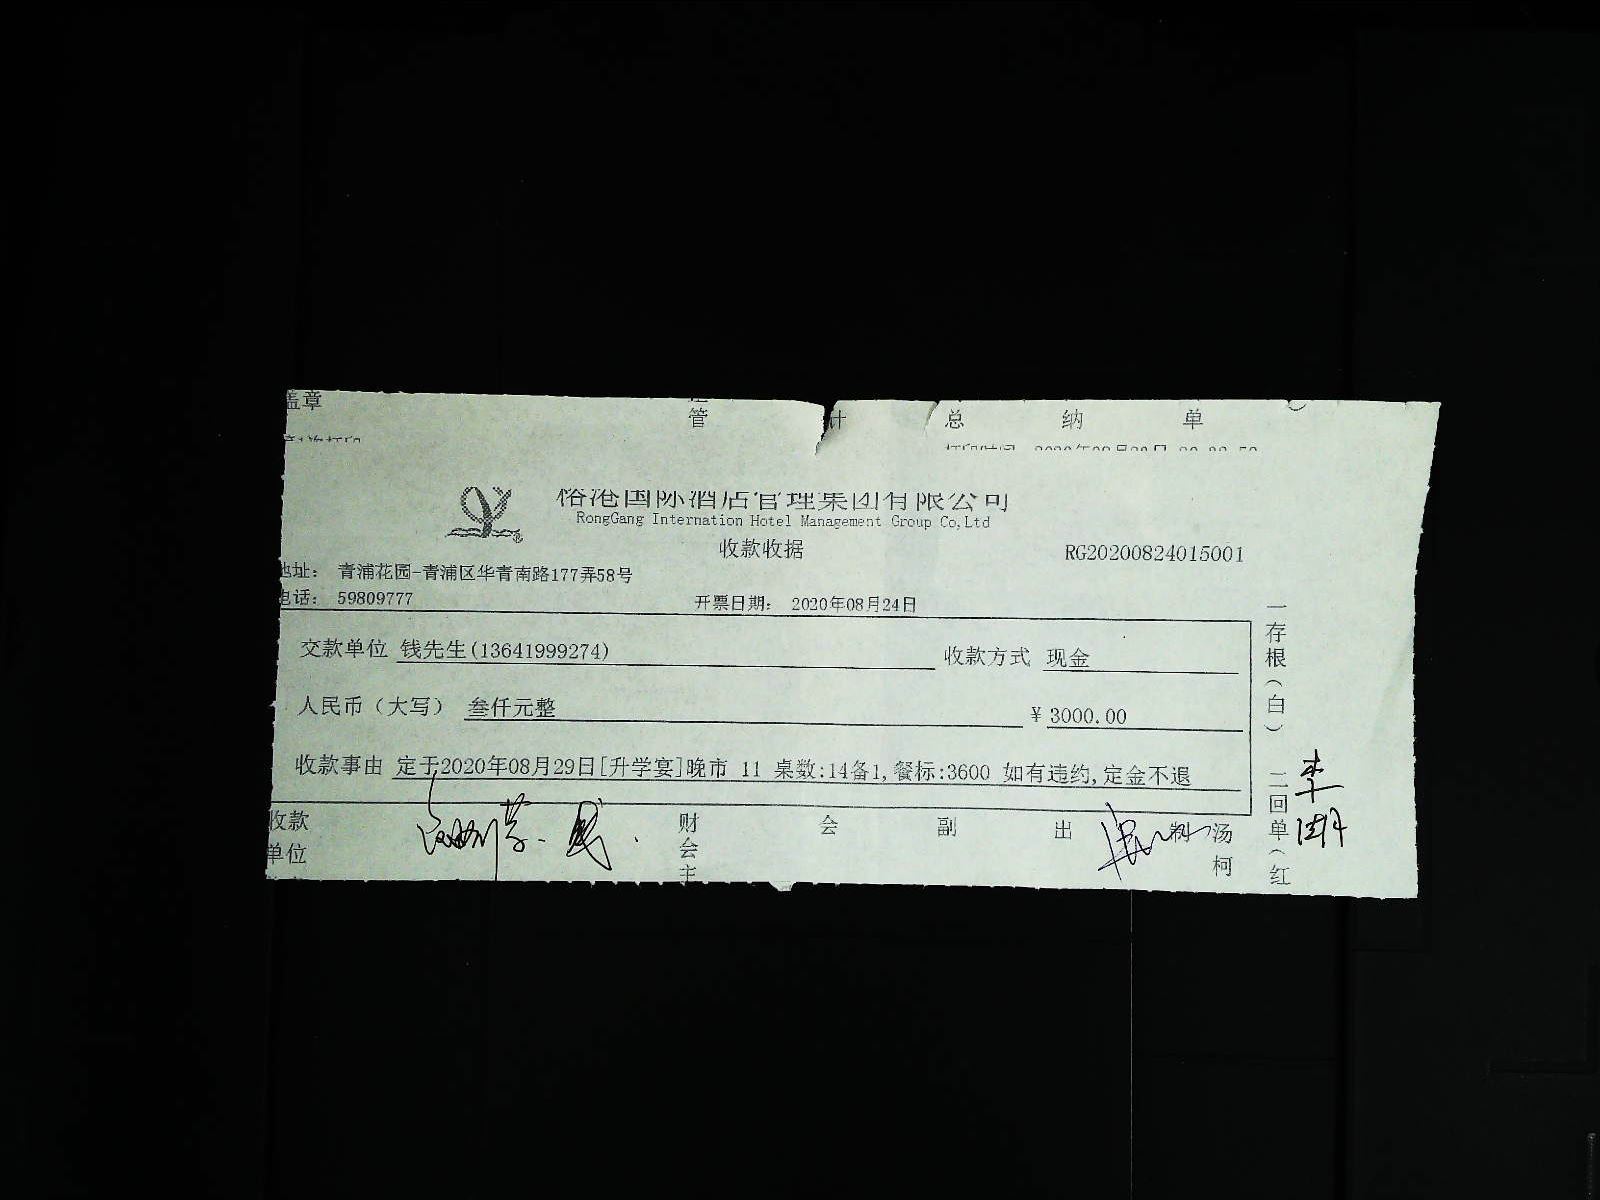 盖章 管 计 总 纳 单
榕港国际酒店管理集团有限公司
RongGang Internation Hotel Management Group Co,Ltd
收款收据 RG20200824015001
地址： 青浦花园-青浦区华青南路177弄58号
电话： 59809777 开票日期： 2020年08月24日
交款单位 钱先生(13641999274) 收款方式 现金
人民币（大写） 叁仟元整 ¥ 3000.00
收款事由 定于2020年08月29日[升学宴]晚市 11 桌数:14备1,餐标:3600 如有违约,定金不退
收款单位 财会主 会 副 出 制 汤柯
一存根（白） 二回单（红